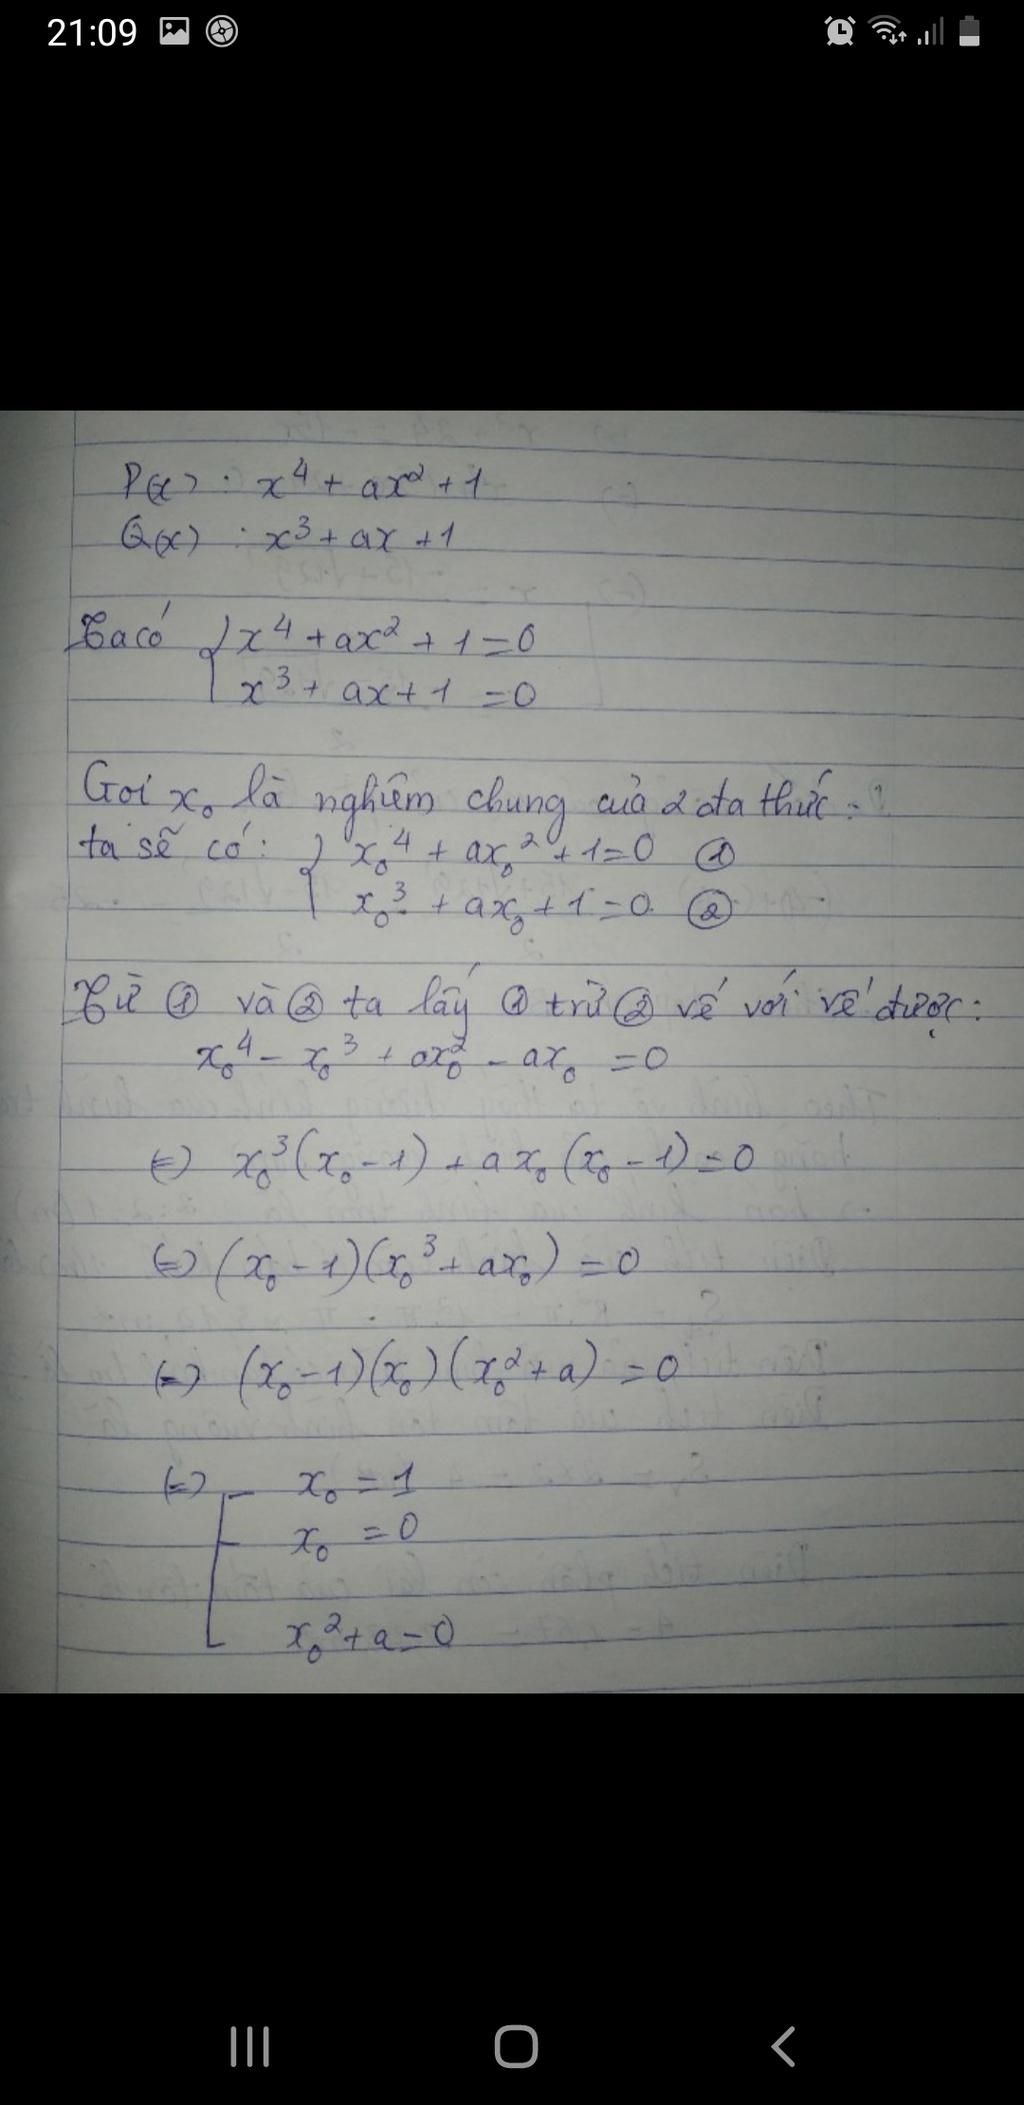 21:09
P(x) : x⁴ + ax² + 1
Q(x) : x³ + ax + 1
Ta có { x⁴ + ax² + 1 = 0
x³ + ax + 1 = 0
Gọi x₀ là nghiệm chung của 2 đa thức :
ta sẽ có: { x₀⁴ + ax₀² + 1 = 0 ①
x₀³ + ax₀ + 1 = 0 ②
Từ ① và ② ta lấy ① trừ ② vế với vế được:
x₀⁴ - x₀³ + ax₀² - ax₀ = 0
(=) x₀³(x₀ - 1) + ax₀(x₀ - 1) = 0
(=) (x₀ - 1)(x₀³ + ax₀) = 0
(=) (x₀ - 1)(x₀)(x₀² + a) = 0
(=) [ x₀ = 1
x₀ = 0
x₀² + a = 0